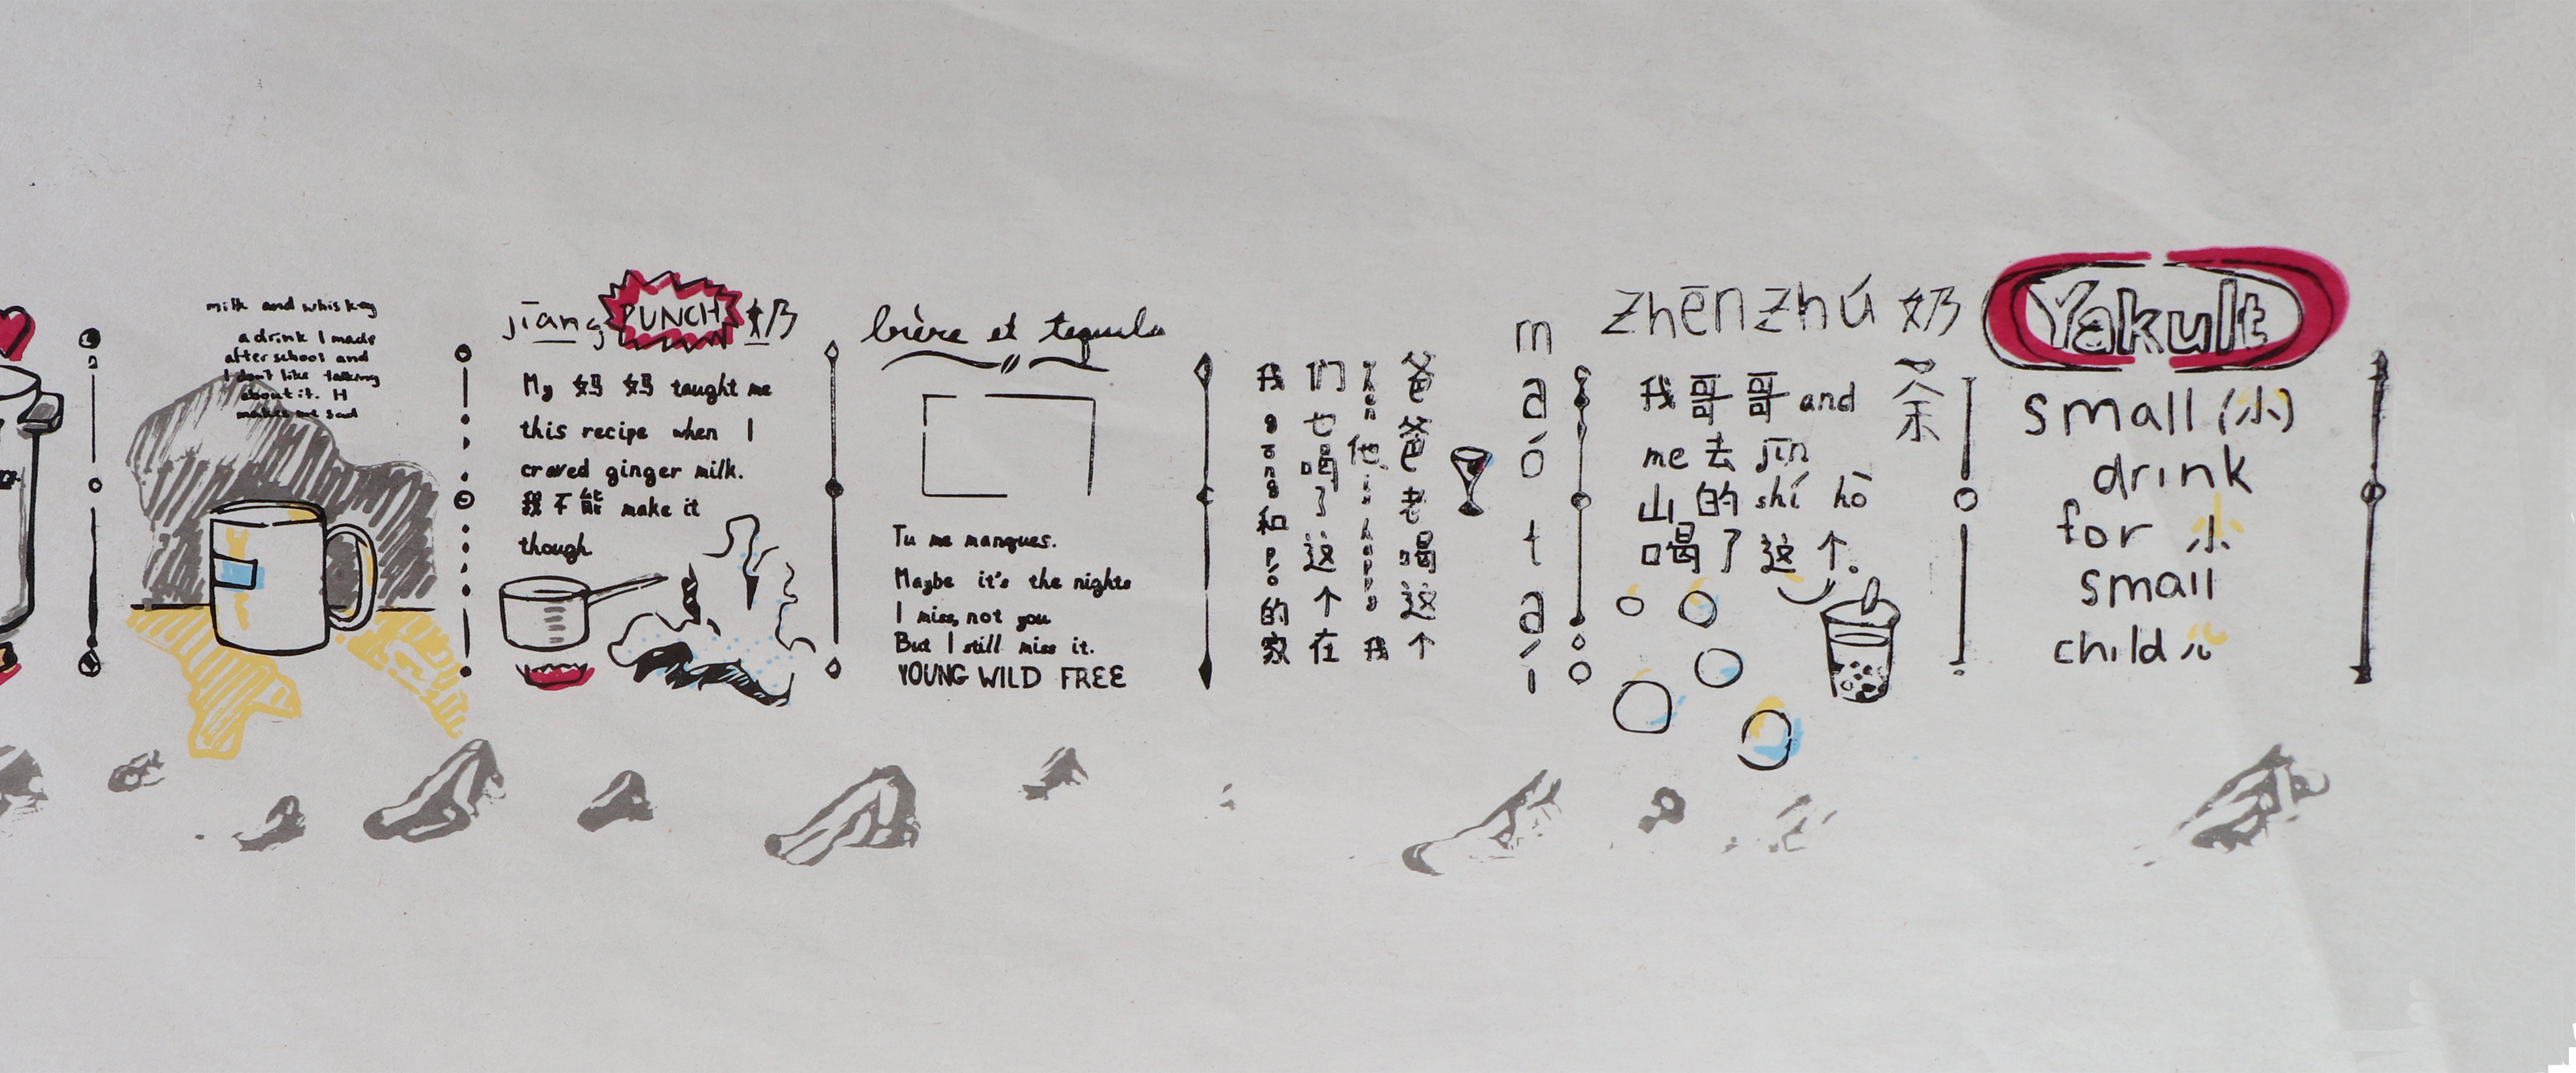 milk and whiskey
a drink I made
after school and
I don't like talking
about it. It
makes me sad
jīang PUNCH 奶
My 妈妈 taught me
this recipe when I
craved ginger milk.
我不能 make it
though
bière et tequila
Tu me manques.
Maybe it's the nights
I miss, not you
But I still miss it.
YOUNG WILD FREE
maótaí
爸爸老喝这个
他 我
们也喝了这个在
我gōng和pó的家
zhēnzhú 奶茶
我哥哥and
me 去 jīn
山的 shí hò
喝了这个。
Yakult
small (小)
drink
for 小
small
child